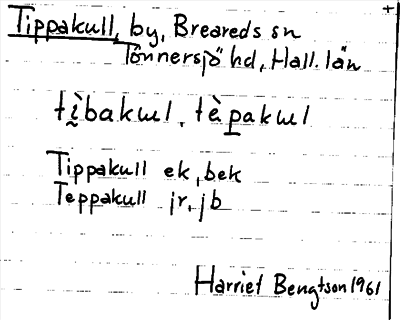 Tippakull, by, Breareds sn
Tönnersjö hd, Hall. län
tìbakɯl, tèpakɯl
Tippakull ek, bek
Teppakull jr, jb
Harriet Bengtson 1961